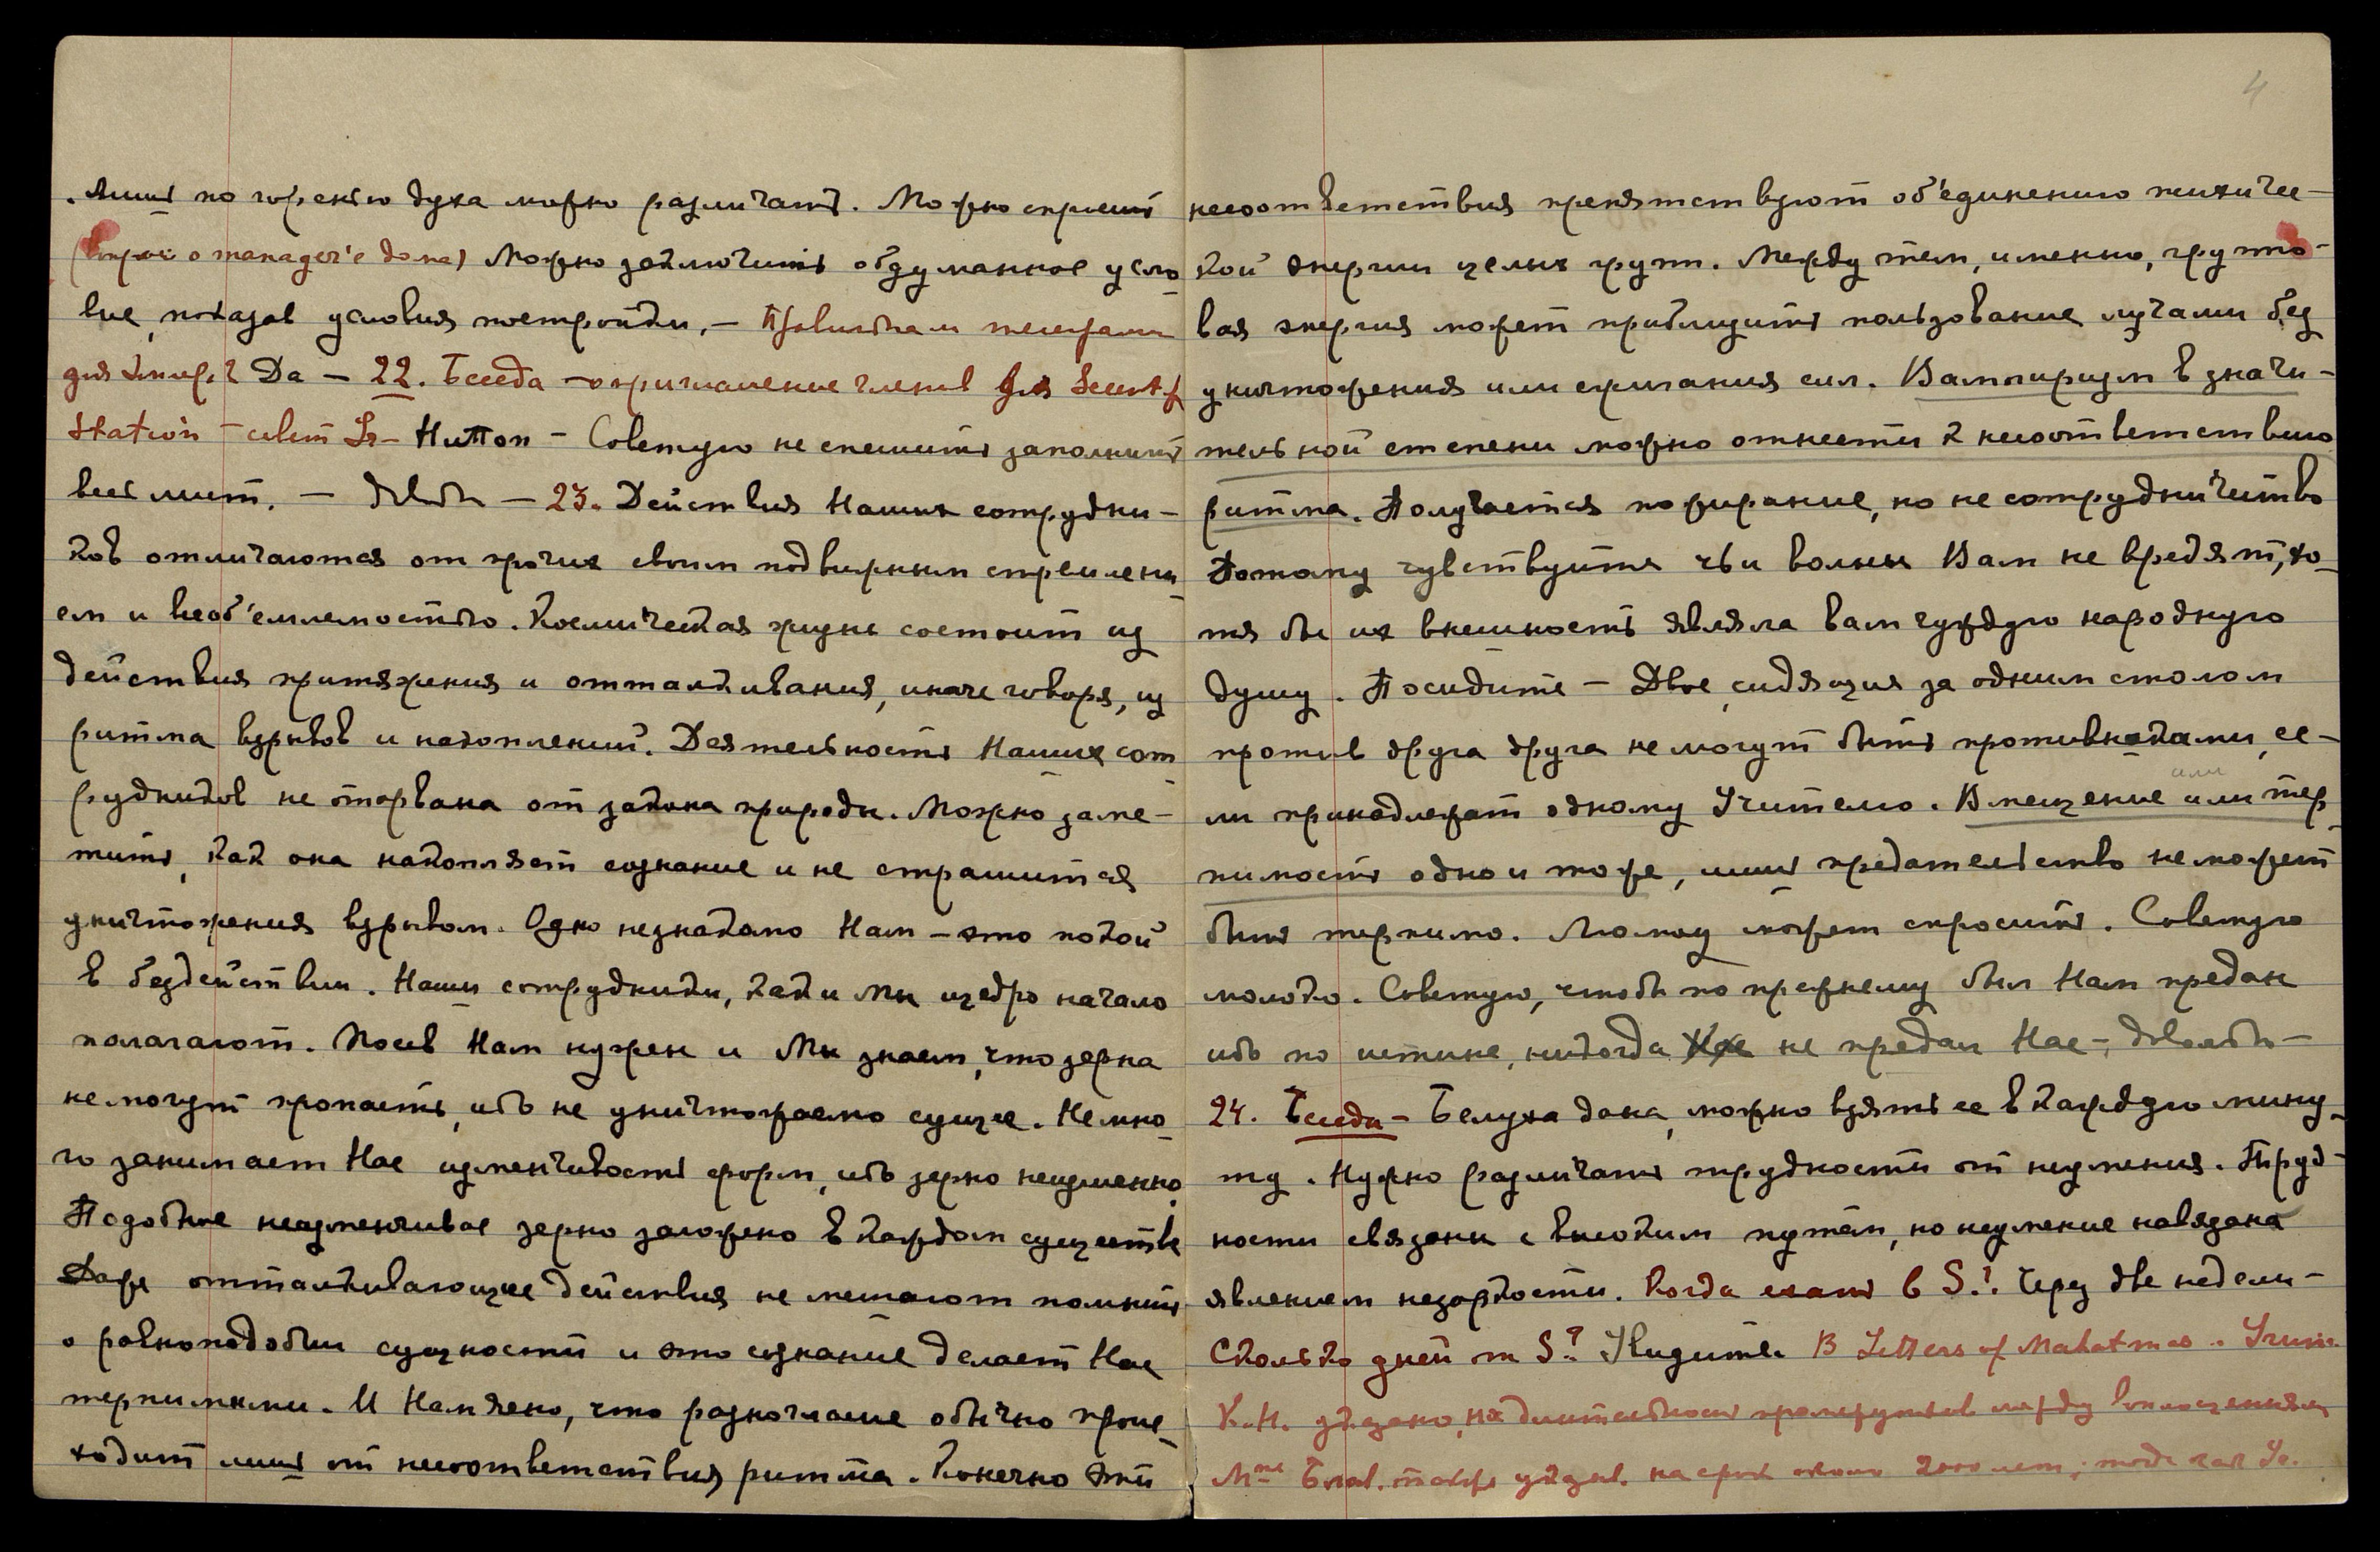 лишь по горению духа можно различать. Можно спросить
(вопрос о manager'е дома) Можно заключить обдуманное усло
вие, показав условия постройки. —
для Да — 22. Беседа — о приглашение членов для Scientif
Station — совет Hutton — Советую не спешить заполнить
весь лист. — довольно — 23. Действия Наших сотрудни-
ков отличаются от прочих своим подвижным стремлени
ем и необ'емлемостью. Космическая жизнь состоит из
действия притяжения и отталкивания, иначе говоря, из
ритма взрывов и накоплений. Деятельность Наших сот
рудников не оторвана от закона природы. Можно заме-
тить, как она накопляет сознание и не страшится
уничтожения взрывом. Одно незнакомо Нам — это покой
в бездействии. Наши сотрудники, как и Мы щедро начало
полагают. Посев Нам нужен и Мы знаем, что зерна
не могут пропасть, ибо не уничтожаемо сущее. Немно
го занимает Нас изменчивость форм, ибо зерно неизменно.
Подобное неизменчивое зерно заложено в каждом существе
Даже отталкивающие действия не мешают помнить
о равноподобии сущности и это сознание делает Нас
терпимыми. И Нам ясно, что разногласие обычно проис
ходит лишь от несоответствия ритма. Конечно эти
4
несоответствия препятствуют об'единению психичес-
кой энергии целых групп. Между тем, именно, группо-
вая энергия может приблизить пользование лучами без
уничтожения или сжигания сил. Вампиризм в значи-
тельной степени можно отнести к несоответствию
ритма. Получается пожирание, но не сотрудничество
Потому чувствуйте чьи волны Вам не вредят, хо-
тя бы их внешность являла вам чуждую народную
душу. Посидите — Двое, сидящия за одним столом
против друга друга не могут быть противниками, ес-
ли принадлежат одному Учителю. Вмещение или тер
пимость одно и тоже, лишь предательство не может
быть терпимо. может спросить. Советую
молоко. Советую, чтобы по прежнему был Нам предан
ибо по истине, никогда не предал Нас —, довольно —
24. Беседа — Белуха дана, можно взять ее в каждую мину
ту. Нужно различать трудности от неумения. Труд-
ности связаны с высоким путем, но неумение навязана
явлением незоркости. Когда ехать в S.? Через две недели —
Сколько дней в S.? Увидите. В Letters of Mahatmas
К.Н. указано, на длительность промежутков между воплощениями
Mme Блав. также указыв. на срок около 2000 лет;